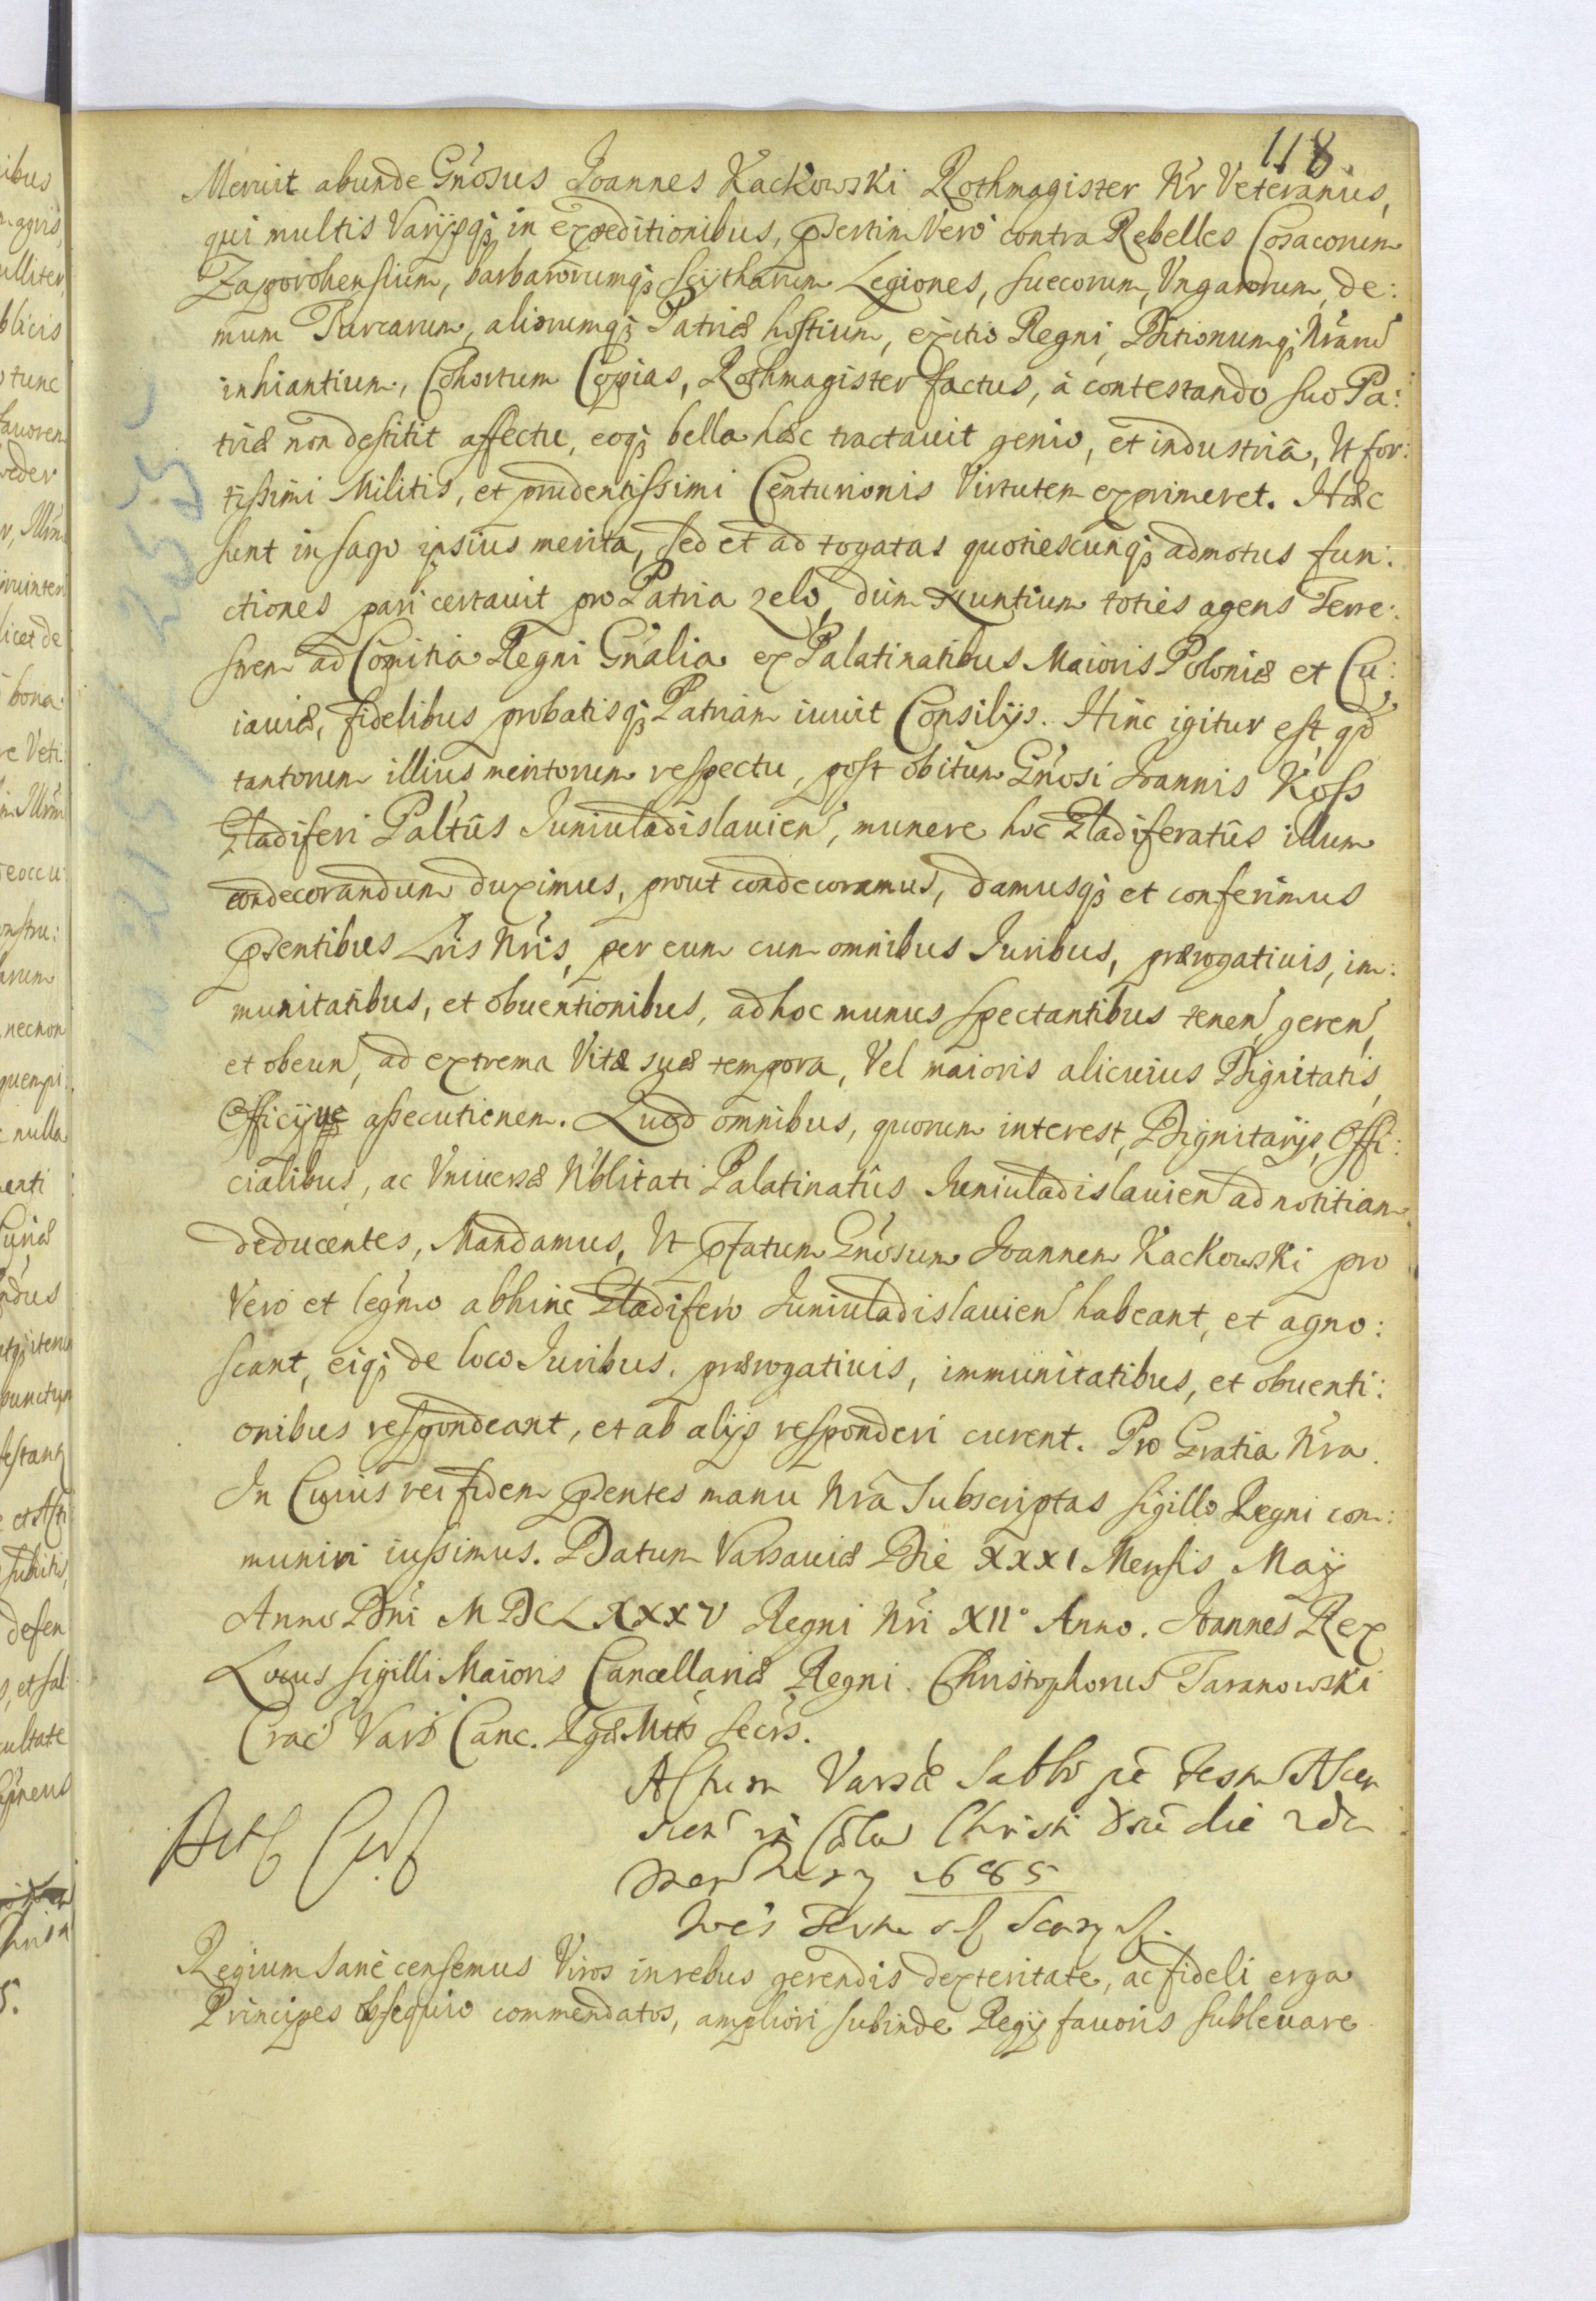 118
Meruit abunde Gnosus Joannes Kackowski Rothmagister Nr Veteranus,
qui multis Varijsq; in expeditionibus, psertim Vero contra Rebelles Cosacorum
Zaporohensium, barbarorumq; Scytharum Legiones, suecorum, Vngarorum, de:
mum Turcarum, aliorumq; Patriæ hostium, exitio Regni, Ditionumq; Nrarū
inhiantium, Cohortum Copias, Rothmagister factus, à contestando suo Pa:
triæ non destitit affectu, eoq; bella hæc tractauit genio, et industriâ, Vt for:
tissimi Militis, et prudentissimi Centurionis Virtutem exprimeret. Hæc
sunt in sago ipsius merita, sed et ad togatas quotiescunq; admotus fun:
ctiones pari certauit pro Patria zelo, dum Nuntium toties agens Terre:
strem ad Comitia Regni Gnalia ex Palatinatibus Maioris Poloniæ et Cu:
iauiæ, fidelibus probatisq; Patriam iuuit Consilijs. Hinc igitur est, qd
tantorum illius meritorum respectu, post obitum Gnosi Joannis Koss
Gladiferi Paltûs Juniuladislauien, munere hoc Gladiferatûs illum
condecorandum duximus, prout condecoramus, damusq; et conferimus
psentibus Lris Nris, per eum cum omnibus Juribus, prærogatiuis, im:
munitatibus, et obuentionibus, ad hoc munus spectantibus tenen, geren,
et obeun, ad extrema Vitæ suæ tempora, Vel maioris alicuius Dignitatis,
Officijue assecutionem. Quod omnibus, quorum interest, Dignitarijs, Offi:
cialibus, ac Vniuersæ Nblitati Palatinatûs Juniuladislauien ad notitiam
deducentes, Mandamus, Vt pfatum Gnosum Joannem Kackowski pro
Vero et legmo abhinc Gladifero Juniuladislauien habeant, et agno:
scant, eiq; de loco Juribus, prærogatiuis, immunitatibus, et obuenti:
onibus respondeant, et ab alijs responderi curent. Pro Gratia Nra.
In Cuius rei fidem psentes manu Nra Subscriptas sigillo Regni com:
muniri iussimus. Datum Varsauiæ Die XXXI Mensis Maij
Anno Dni MDCLXXXV Regni Nri XII° Anno. Joannes Rex
Locus sigilli Maioris Cancellariæ Regni. Christophorus Taranowski
Crac Vars Canc. Rgæ Mttis Secrs.
Actum Varsæ Sabbo
in Cælū Christi Dni die 2da
1685
Regium sanè censemus Viros in rebus gerendis dexteritate, ac fideli erga
Principes obsequio commendatos, ampliori subinde Regij fauoris subleuare